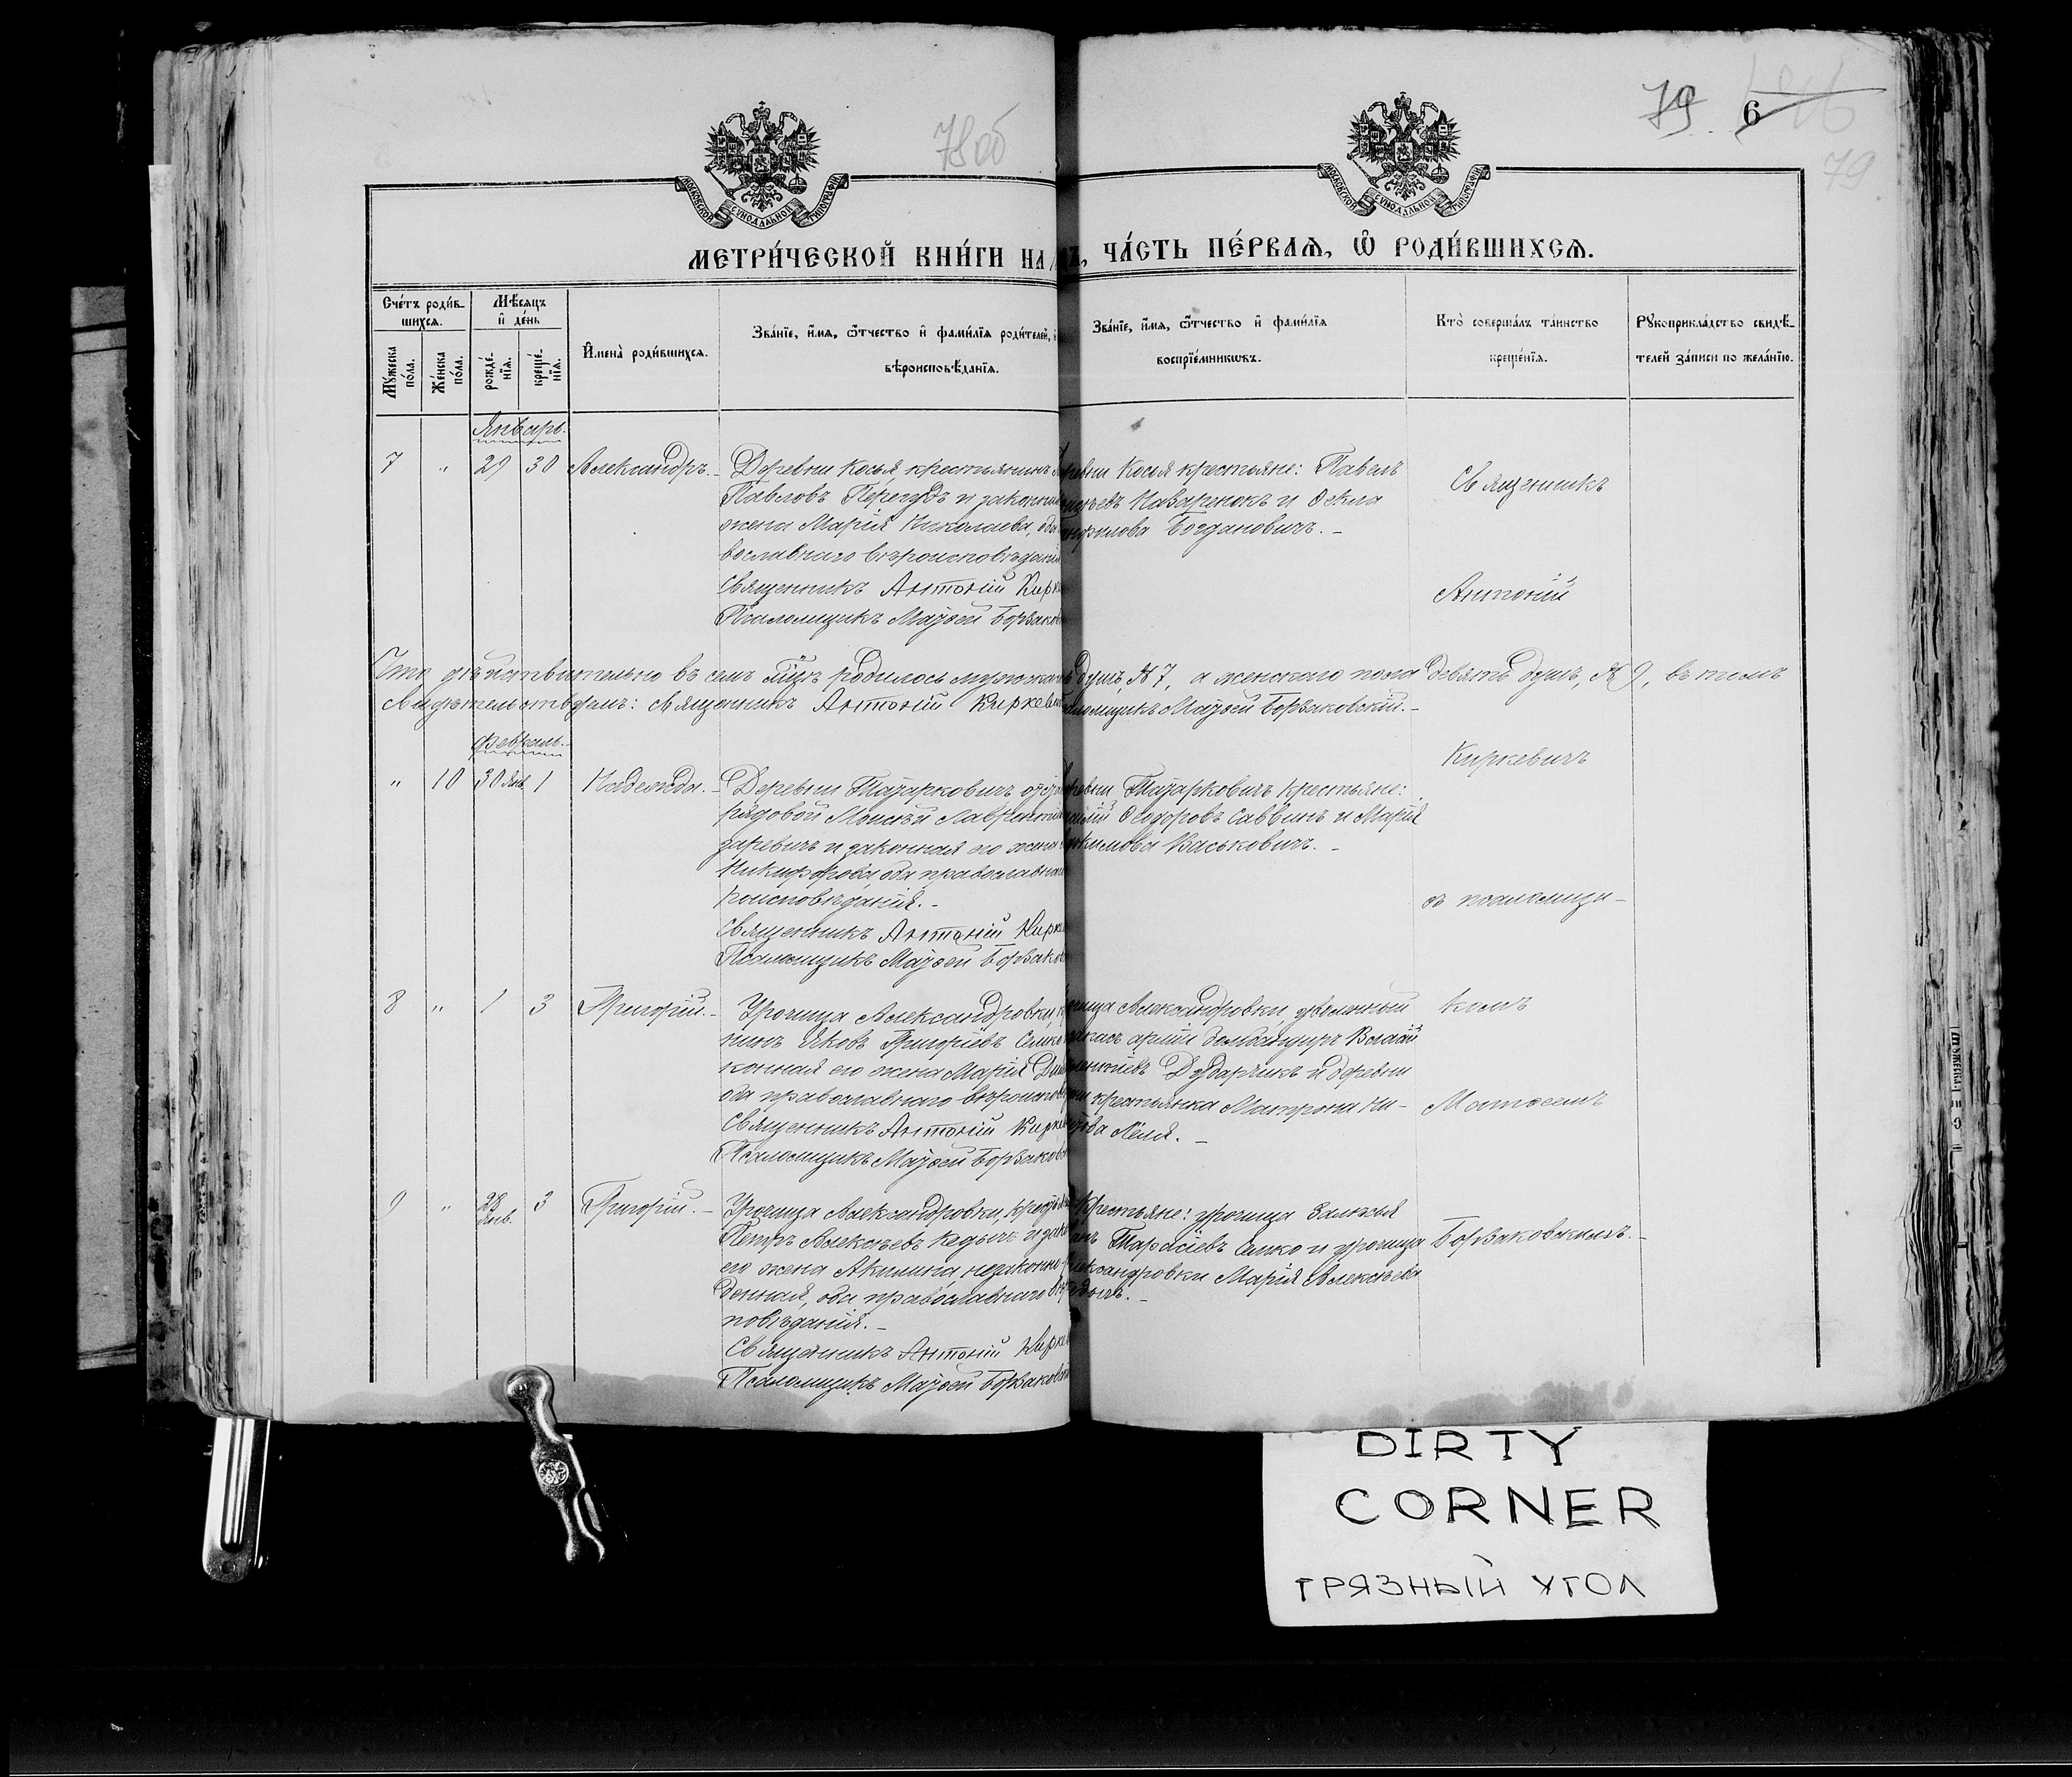 78об
79
6
79
МОСКОВСКОЙ СУНОДАЛЬНОЙ ТИПОГРАФІИ
МОСКОВСКОЙ СУНОДАЛЬНОЙ ТИПОГРАФІИ
МЕТРИ́ЧЕСКОЙ КНИ́ГИ НА
ЧА́СТЬ ПЕ́РВАЯ, Ѿ РОДИ́ВШИХСЯ.
Сче́тъ роди́в-
шихся.
Мꙋ́жеска по́ла.
Же́нска по́ла.
Мѣ́сяцъ и де́нь
рожде́-нїя.
креще́-нїя.
И҆мена̀ роди́вшихся.
Зва́нїе, и҆́мя, ѻ҆́тчество и҆ фами́лїя роди́телей,
вѣроисповѣ́данїя.
Зва́нїе, и҆́мя, ѻ҆́тчество и҆ фами́лїя
воспрїе́мникѡвъ.
Кто̀ соверша́лъ та́инство
креще́нїя.
Рꙋкоприкла́дство свидѣ́-
телей за́писи по жела́нїю.
Январь.
7 " 29 30 Александръ.-
Деревни Косья крестьянинъ
Павловъ Перегудъ и законная
жена Марія Николаева, оба
вославнаго вѣроисповѣданія
Священникъ Антоній Кирке
Псаломщикъ Матѳей Борзаков
Косья крестьяне: Павелъ
Назарчюкъ и Ѳекла
Богдановичъ.-
Священникъ
Антоній
Что дѣйствительно въ семъ мцѣ родилось мужска душъ, № 7, а женскаго пола девять душъ, № 9, въ томъ
свидѣтельствуемъ: Священникъ Антоній Киркевич Матѳей Борзаковскій.-
Февраль.
" 10 30 Янв. 1 Надежда.-
Деревни Татарковичъ
рядовой Моисей Лаврентіев
заревичъ и законная его жена
Никифорова, оба православнаг
роисповѣданія.-
Священникъ Антоній Кирке
Псаломщикъ Матѳей Борзаков
Татарковичъ крестьяне:
Ѳеодоровъ Саввинъ и Марія
Васьковичъ.-
Киркевичъ
съ псаломщи-
8 " 1 3 Григорій.-
Урочища Александровки,
нинъ Яковъ Григорьевъ Семко
конная его жена Марія
оба православнаго вѣроиспов
Священникъ Антоній Киркев
Псаломщикъ Матѳей Борзаков
Александровки уволенный
арміи бомбандиръ Василій
Дударчикъ и деревни
крестьянка Матрона Ни-
Леля.-
комъ
Матѳеемъ
9 " 28 Янв. 3 Григорій.-
Урочища Александровки, крестья
Петръ Алексѣевъ Кедычъ и зак
его жена Акилина незаконно-
денная, оба православнаго вѣр
повѣданія.-
Священникъ Антоній Кирке
Псаломщикъ Матѳей Борзаков
Крестьяне: урочища Залжья
Тарасіевъ Семко и урочища
Александровки Марія Алексѣева
Борзаковскимъ.-
DIRTY
CORNER
ГРЯЗНЫЙ УГОЛ